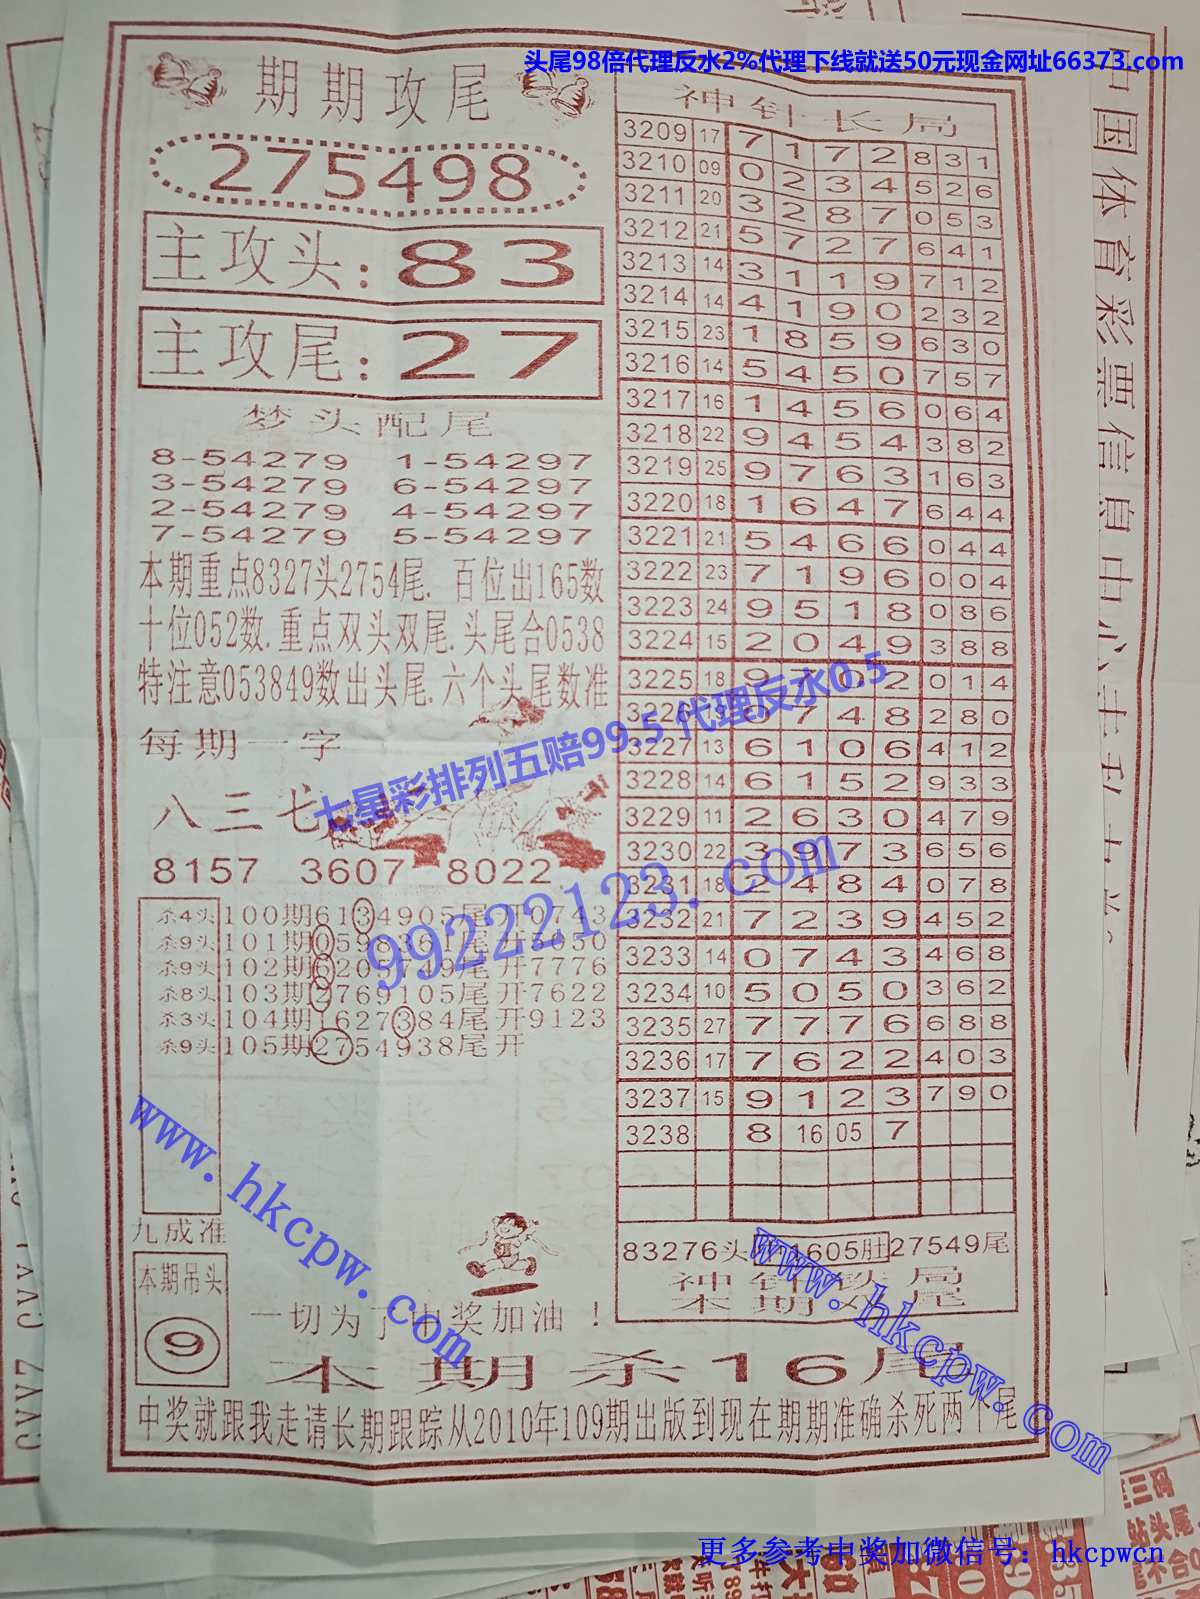 头尾98倍代理反水2%代理下线就送50元现金网址66373.com
期期攻尾
275498
主攻头:83
主攻尾:27
梦头配尾
8-54279 1-54297
3-54279 6-54297
2-54279 4-54297
7-54279 5-54297
本期重点8327头2754尾. 百位出165数
十位052数.重点双头双尾.头尾合0538
特注意053849数出头尾.六个头尾数准
每期一字
八三七
8157 3607 8022
杀4头 100期6134905尾开0743
杀9头 101期0598361尾开5050
杀9头 102期6205749尾开7776
杀8头 103期2769105尾开7622
杀3头 104期1627384尾开9123
杀9头 105期2754938尾开
九成准
本期吊头
9
一切为了中奖加油!
神针长局
3209 17 7 1 7 2 8 3 1
3210 09 0 2 3 4 5 2 6
3211 20 3 2 8 7 0 5 3
3212 21 5 7 2 7 6 4 1
3213 14 3 1 1 9 7 1 2
3214 14 4 1 9 0 2 3 2
3215 23 1 8 5 9 6 3 0
3216 14 5 4 5 0 7 5 7
3217 16 1 4 5 6 0 6 4
3218 22 9 4 5 4 3 8 2
3219 25 9 7 6 3 1 6 3
3220 18 1 6 4 7 6 4 4
3221 21 5 4 6 6 0 4 4
3222 23 7 1 9 6 0 0 4
3223 24 9 5 1 8 0 8 6
3224 15 2 0 4 9 3 8 8
3225 18 9 7 0 2 0 1 4
3226 19 0 7 4 8 2 8 0
3227 13 6 1 0 6 4 1 2
3228 14 6 1 5 2 9 3 3
3229 11 2 6 3 0 4 7 9
3230 22 3 9 7 3 6 5 6
3231 18 2 4 8 4 0 7 8
3232 21 7 2 3 9 4 5 2
3233 14 0 7 4 3 4 6 8
3234 10 5 0 5 0 3 6 2
3235 27 7 7 7 6 6 8 8
3236 17 7 6 2 2 4 0 3
3237 15 9 1 2 3 7 9 0
3238 8 16 05 7
83276头 1605肚 27549尾
本期杀16尾
中奖就跟我走请长期跟踪从2010年109期出版到现在期期准确杀死两个尾
七星彩排列五赔99.5 代理反水0.5
99222123.com
www.hkcpw.com
www.hkcpw.com
中国体育彩票信息中心主
更多参考中奖加微信号: hkcpwcn